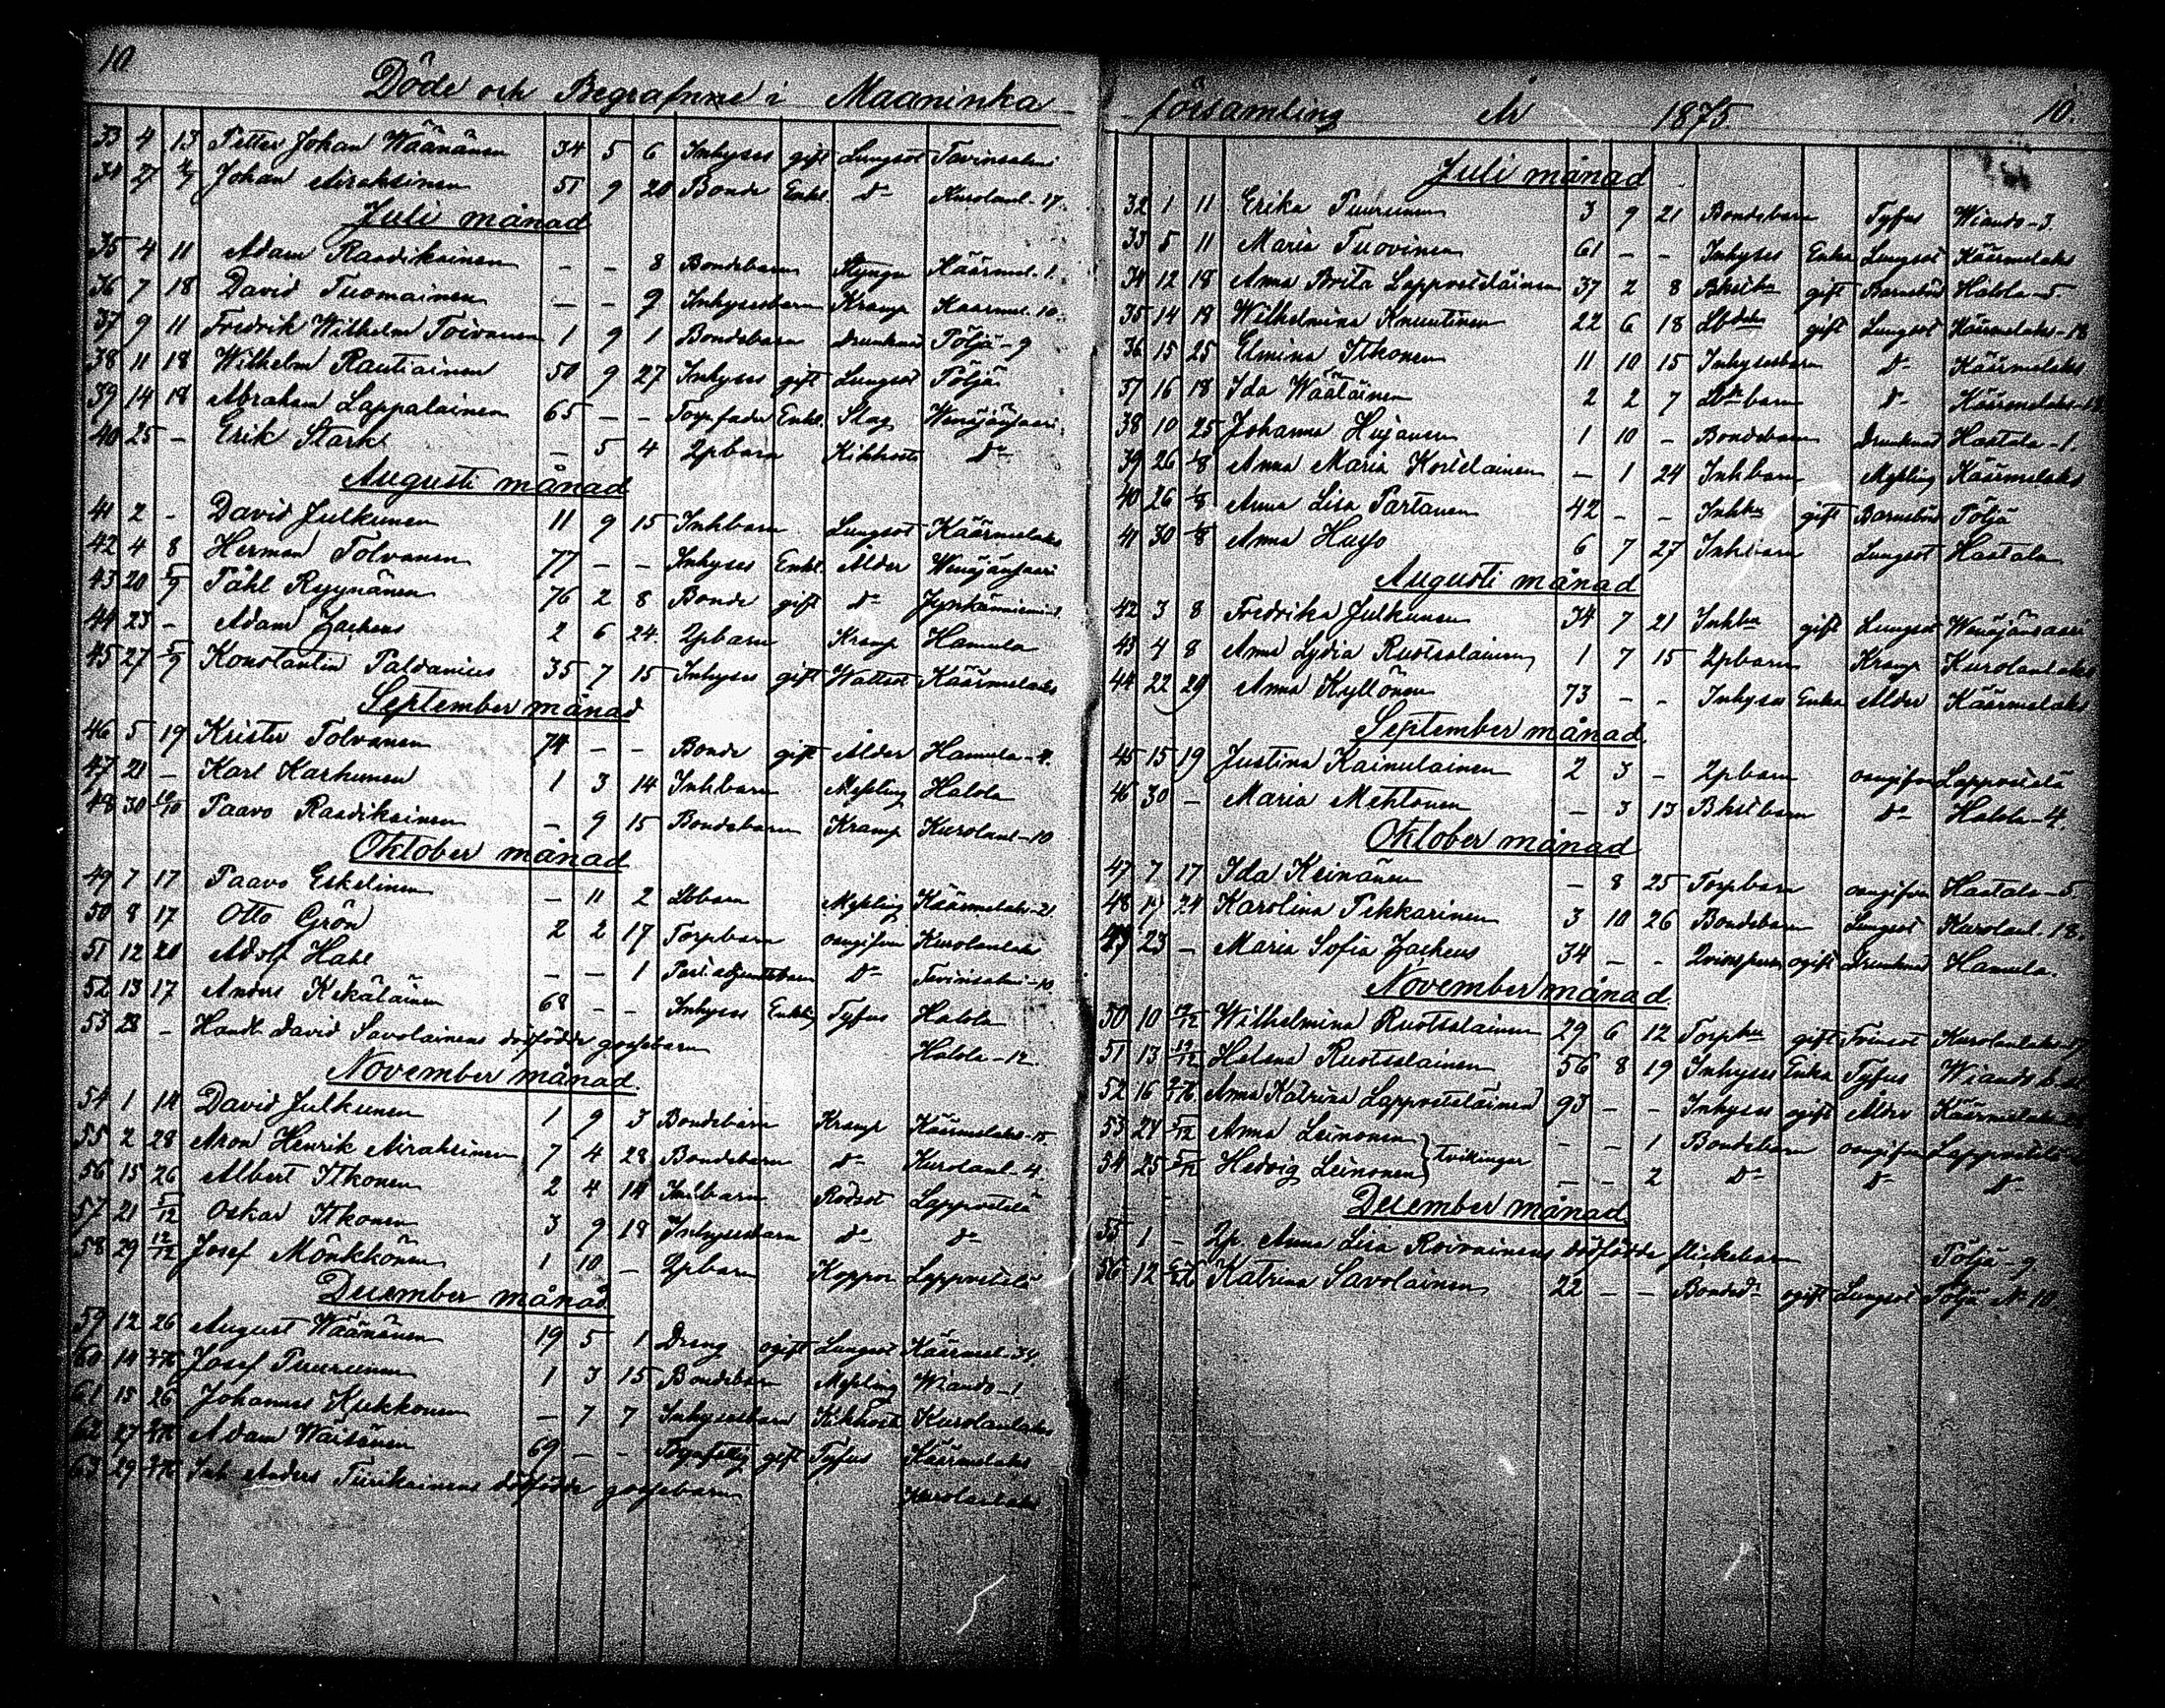 10
Döde och Begrafne i Maaninka
33 4 13 Petter Johan Wäänänen 34 5 6 Inhyses gift Lungsot Tavinsalmi
34 27 4/7 Johan Airaksinen 51 9 20 Bonde Enkl. do Kurolanl- 17.
Juli månad
35 4 11 Adam Raadikainen - - 8 Bondebarn Käärmel. 1.
36 7 18 David Tuomainen - - 9 Inhysesbarn Kramp Käärmel. 10.
37 9 11 Fredrik Wilhelm Toivanen 1 9 1 Bondebarn Drunknad Pöljä - 9
38 11 18 Wilhelm Rautiainen 50 9 27 Inhyses gift Lungsot Pöljä
39 14 18 Abraham Lappalainen 65 - - Enkl. Slag Wenäjänsaari
40 25 - Erik Stark - 5 4 Lpbarn Kikhosta do
Augusti månad
41 2 - David Julkunen 11 9 15 Inhbarn Lungsot Käärmelaks
42 4 8 Herman Tolvanen 77 - - Inhyses Enkl. Ålder Wenäjänsaari
43 20 5/9 Påhl Ryynänen 76 2 8 Bonde gift do
44 23 - Adam Zacheus 2 6 24 Lpbarn Kramp Hamula
45 27 5/9 Konstantin Paldanius 35 7 15 Inhyses gift Wattsot Käärmelaks
September månad
46 5 19 Krister Tolvanen 74 - - Bonde gift Ålder Hamula - 4.
47 21 - Karl Karhunen 1 3 14 Inhbarn Messling Halola
48 30 10/10 Paavo Raadikainen - 9 15 Bondebarn Kramp Kurolanl - 10
Oktober månad
49 7 17 Paavo Eskelinen - 11 2 Lbbarn Messling Käärmelaks - 21
50 8 17 Otto Grön 2 2 17 Torpbarn oangifven Kurolanlaks
51 12 20 Adolf Hahl - - 1 do Tavinsalmi - 10
52 13 17 Anders Kekäläinen 68 - - Inhyses Enkling Tyfus Halola
53 28 - Handl. David Savolainens dödfödde gossebarn Halola - 12
November månad
54 1 14 David Julkunen 1 9 3 Bondebarn Kramp Käärmelaks - 15
55 2 28 Aron Henrik Airaksinen 7 4 28 Bondebarn do Kurolanl - 4.
56 15 26 Albert Itkonen 2 4 14 Inhbarn Rödsot Lappvetelä
57 21 5/12 Oskar Itkonen 3 9 18 Inhysesbarn do do
58 29 12/12 Josef Mönkkönen 1 10 - Lpbarn Koppor Lappvetelä
December månad
59 12 26 August Wäänänen 19 5 1 Dreng ogift Lungsot Käärmel - 34
60 14 Josef Puurunen 1 3 15 Bondebarn Messling Wiando - 1
61 15 26 Johannes Hukkonen - 7 7 Inhysesbarn Kikhosta Kurolanlaks
62 27 Adam Wäisänen 69 - - gift Tyfus Käärmelaks
63 29 Inh. Anders Turikainens dödfödde gossebarn Kurolanlaks
församling År 1875. 10.
Juli månad
32 1 11 Erika Puurunen 3 9 21 Bondebarn Tyfus Wiando - 3.
33 5 11 Maria Tuovinen 61 - - Inhyses Enka Lungsot Käärmelaks
34 12 18 Anna Brita Lappveteläinen 37 2 8 gift Barnsbörd Halola - 5.
35 14 18 Wilhelmina Knuutinen 22 6 18 gift Lungsot Käärmelaks - 18
36 15 25 Elmina Itkonen 11 10 15 Inhysesbarn do Käärmelaks
37 16 18 Ida Wäätäinen 2 2 7 Lbbarn do Käärmelaks
38 10 25 Johanna Hujanen 1 10 - Bondebarn Drunknad Haatala - 1.
39 26 1/8 Anna Maria Kortelainen - 1 24 Inhbarn Messling Käärmelaks
40 26 1/8 Anna Lisa Partanen 42 - - Inhhu gift Barnsbörd Pöljä
41 30 1/8 Anna Huxo 6 7 27 Inhbarn Lungsot Haatala
Augusti månad
42 3 8 Fredrika Julkunen 34 7 21 Inhhu gift Lungsot Wenäjänsaari
43 4 8 Anna Lydia Ruotsalainen 1 7 15 Lpbarn Kramp Kurolanlaks
44 22 29 Anna Kyllönen 73 - - Inhyses Enka Ålder Käärmelaks
September månad
45 15 19 Justina Kainulainen 2 3 - Lpbarn oangifven Lappvetelä
46 30 - Maria Mehtonen - 3 13 do Halola - 4.
Oktober månad
47 7 17 Ida Keinänen - 8 25 Torpbarn oangifven Haatala - 5.
48 19 24 Karolina Pekkarinen 3 10 26 Bondebarn Lungsot Kurolanl. 18.
49 23 - Maria Sofia Zacheus 34 - - Qvinsperson ogift Drunknad Hamula.
November månad
50 10 12/12 Wilhelmina Ruotsalainen 29 6 12 Torphu gift Tvinsot Kurolanlaks
51 13 12/12 Helena Ruotsalainen 56 8 19 Inhyses Enka Tyfus Wiando
52 16 Anna Katrina Lappveteläinen 93 - - Inhyses ogift Ålder Käärmelaks
53 24 5/12 Anna Leinonen } tvillingar - - 1 Bondebarn oangifven Lappvetelä
54 25 5/12 Hedvig Leinonen - - 2 do do do
December månad
55 1 - Lp. Anna Lisa Roivainens dödfödde flickebarn Pöljä - 9
56 12 Katrina Savolainen 22 - - Bonded. ogift Lungsot Pöljä № 10